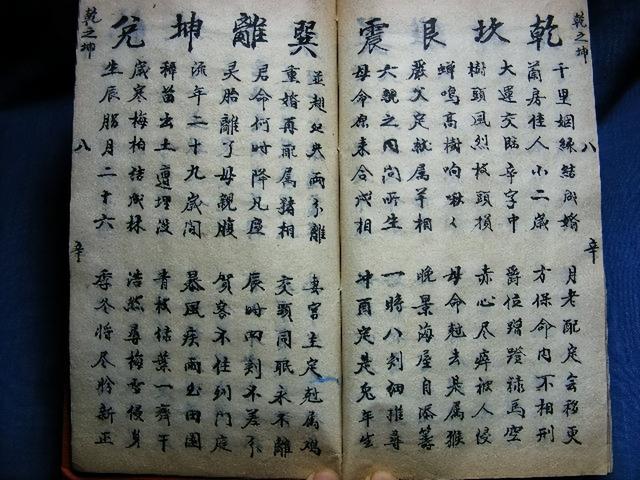 乾之坤
八
辛
乾 坎 艮 震
千里姻緣結成婚
月老配定会移更
蘭房佳人小二歲
方保命内不相刑
大運交臨辛字中
爵位蹭蹬祿馬空
樹頭風烈枝頭損
赤心尽瘁被人侵
蟬鳴高樹响啾く
母命尅去是属猴
嚴父定就属羊相
晚景海屋自添籌
六親之内问所生
一時八刻細推尋
母命原来合戌相
酉定是兔年生
巽 離 坤 兌
並翅处失兩分離
妻宮主定尅属鸡
重婚再配属猪相
交頸同眠永不離
君命何时降凡塵
辰时四刻不差分
灵胎離了母親腹
賀客不住到門庭
流年二十九歲间
暴風疾雨出田園
種苗出土遭埋没
青枝绿葉一齊干
歲寒梅柏結成林
浩然尋梅雪漫身
生辰腊月二十六
季冬将尽新正
乾之坤
八
辛